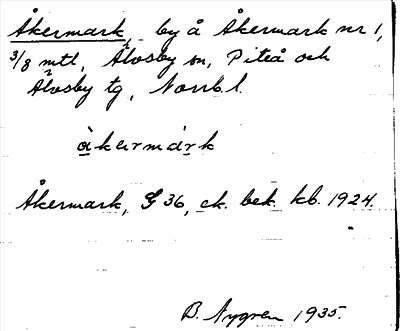 Åkermark, by å Åkermark nr 1,
3/8 mtl, Älvsby sn, Piteå och
Älvsby tg, Norrb. l.
åkermark
Åkermark, G 36, ek. bek. kb. 1924.
B. Nygren 1935.